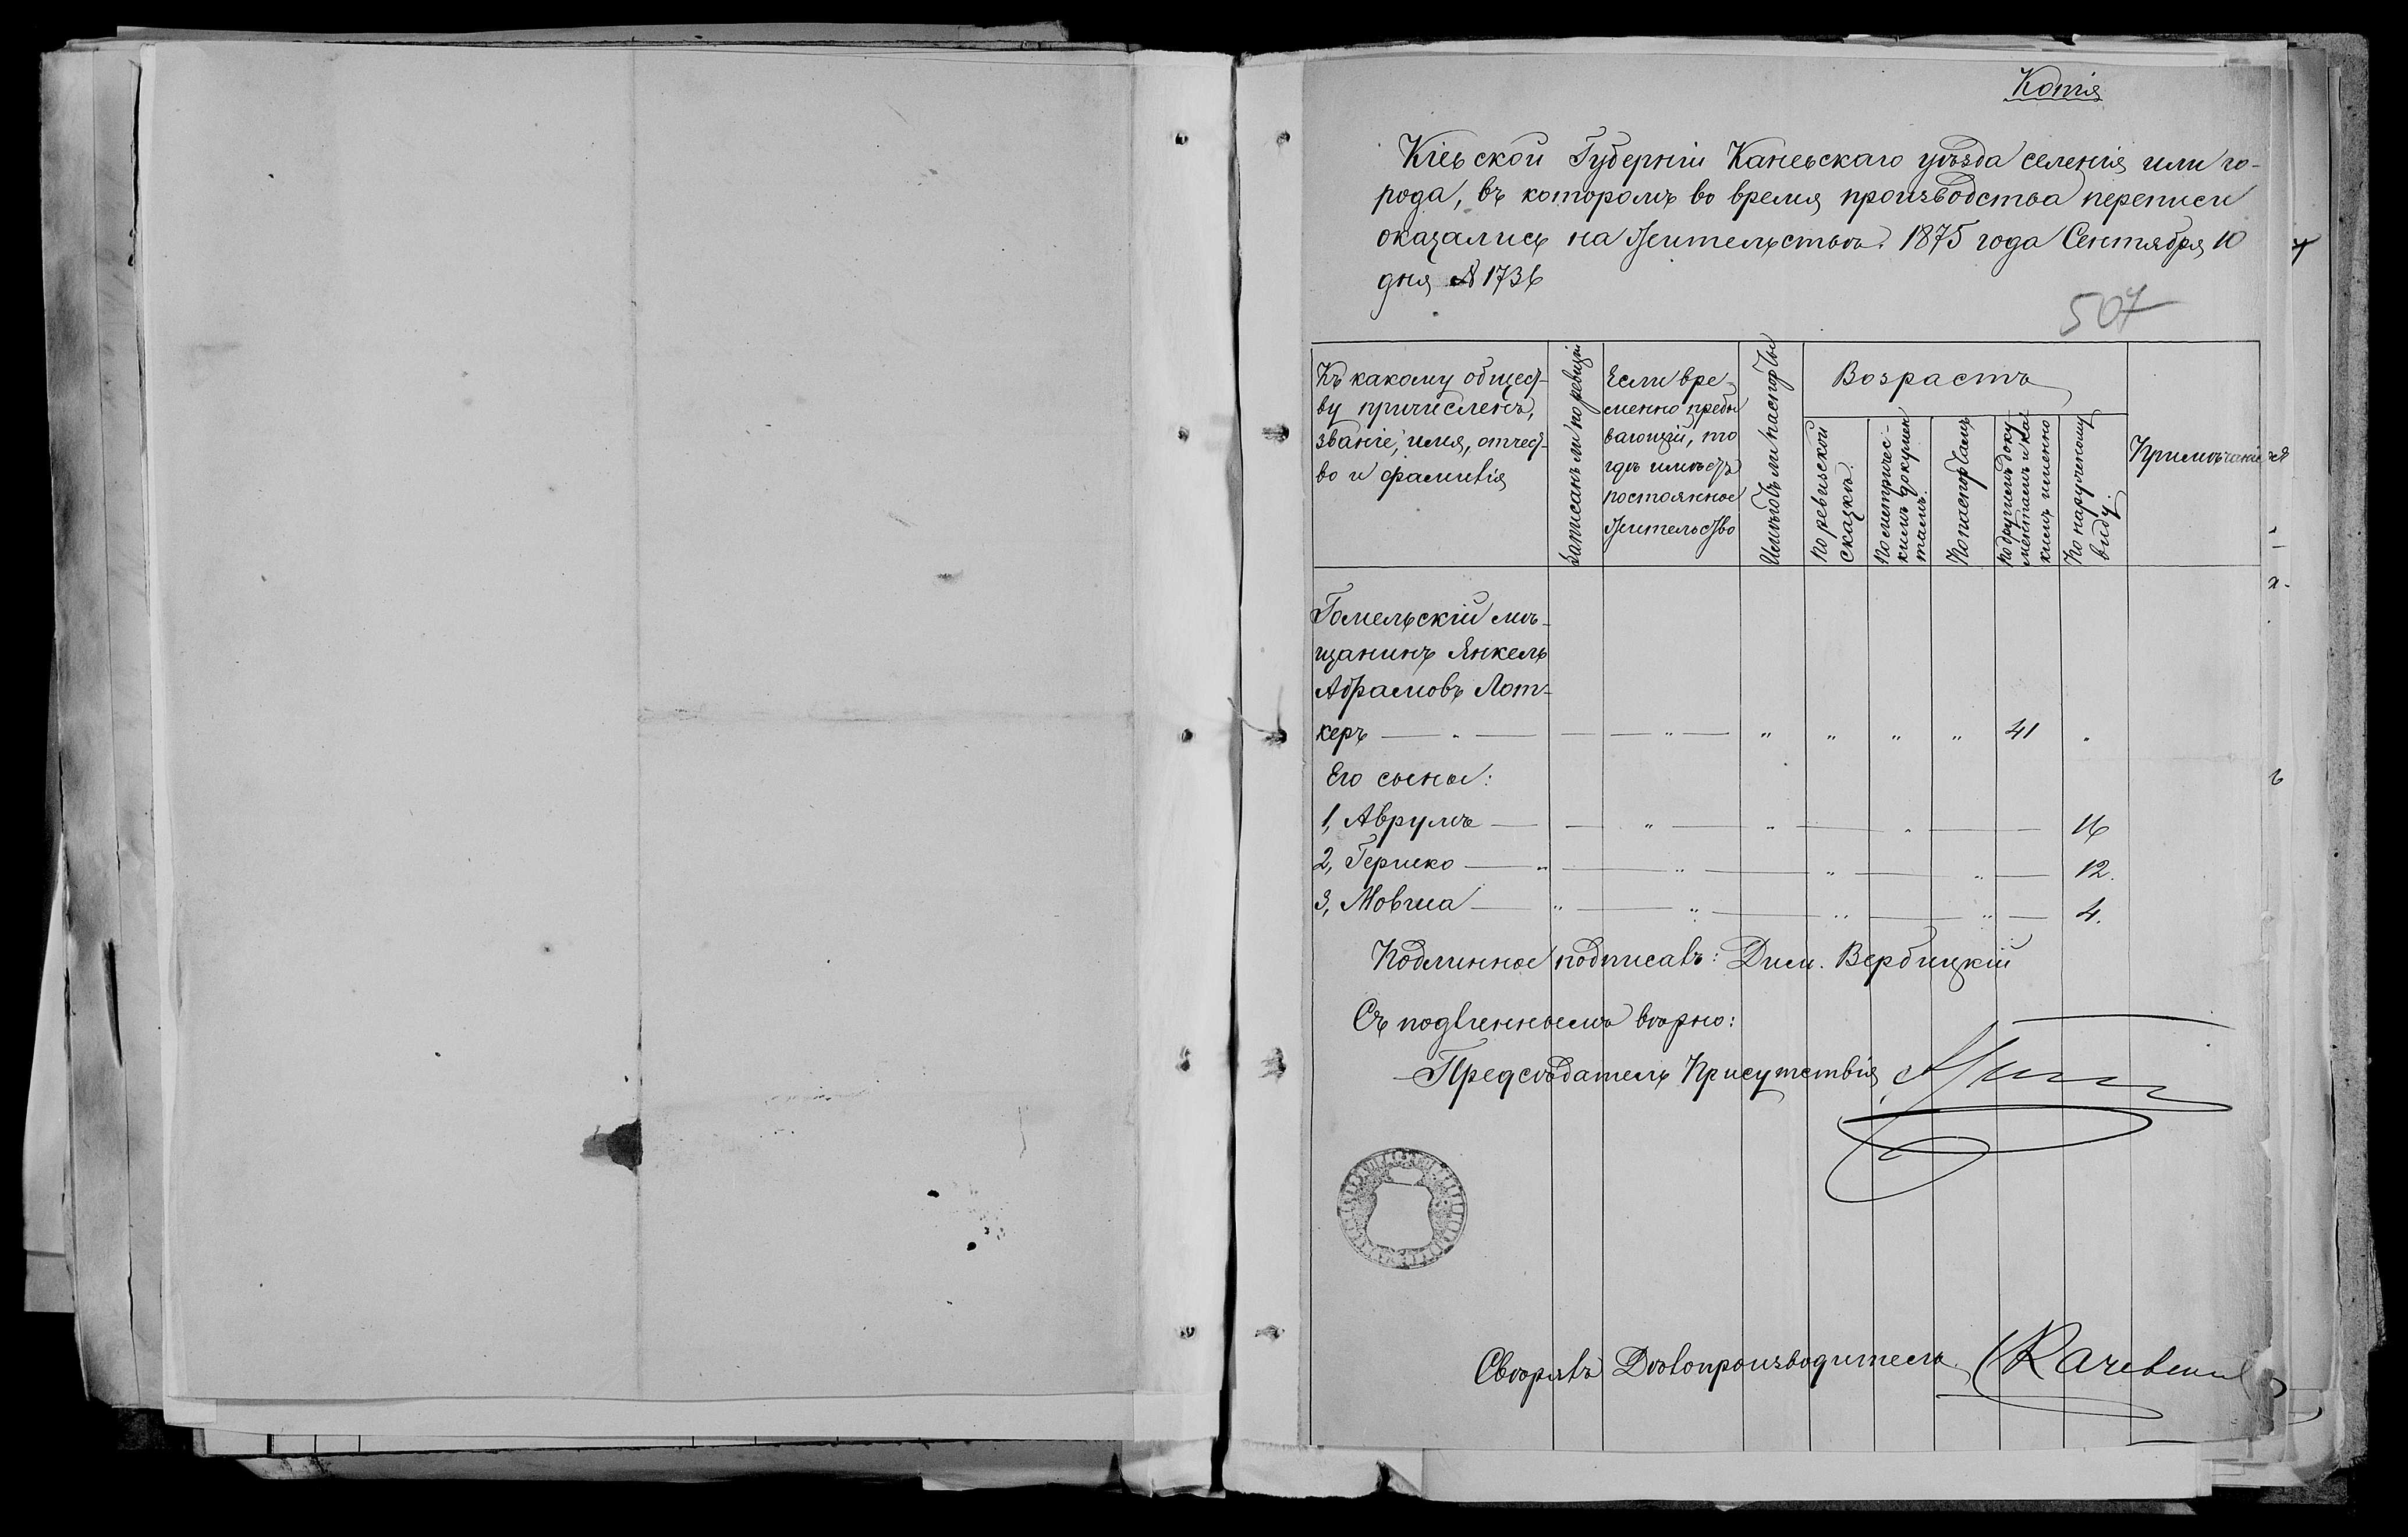 Копія
Кіевской Губерніи Каневскаго уѣзда селенія или го-
рода, въ которомъ во время производства переписи
оказались на жительствѣ. 1875 года Сентября 10
дня № 1736
507
Къ какому общест-
ву причисленъ,
званіе, имя, отчест-
во и фамилія
Записанъ ли по ревизіи
Если вре-
менно пребы
вающій, то
гдѣ имѣетъ
постоянное
жительство
Имѣетъ ли паспорты
Возрастъ
По ревизской
сказкѣ.
По метричес-
кимъ докумен
тамъ.
По паспортамъ
По другимъ доку-
ментамъ и ка-
кимъ именно
По наружному
виду.
Примѣчаніе
Гомельскій мѣ-
щанинъ Янкель
Абрамовъ Лот-
керъ — „ — — — „ — „ „ „ „ 41 „
Его сыны:
1, Аврумъ — — „ — „ — „ — — 16
2, Гершко — „ — „ — „ — „ — 12.
3, Мовша — „ — „ — „ — „ — 4.
Подлинное подписалъ: Дим. Вербицкій
Съ подлиннымъ вѣрно:
Предсѣдатель Присутствія
Свѣрялъ Дѣлопроизводитель